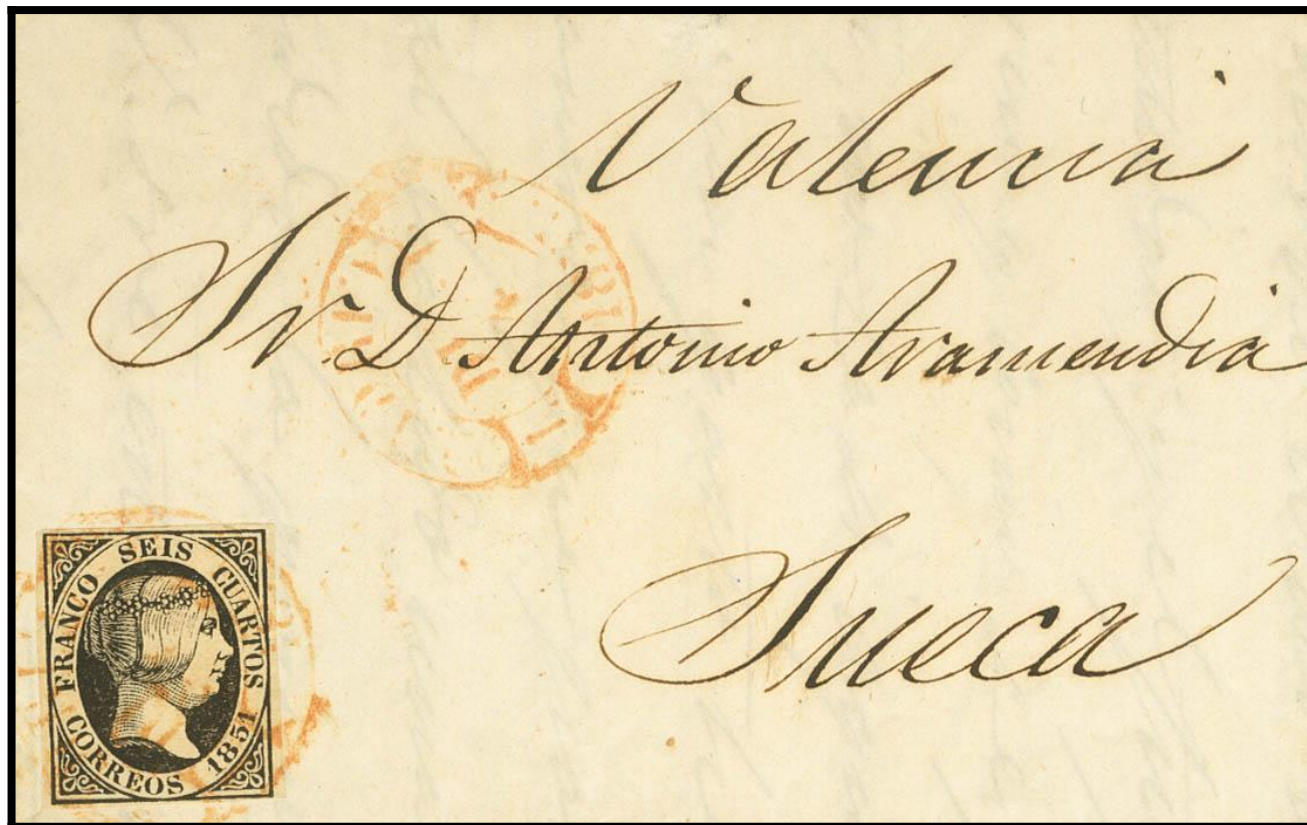 Valencia
Sr. D Antonio Aramendia
Sueca
FRANCO SEIS CUARTOS
CORREOS 1851